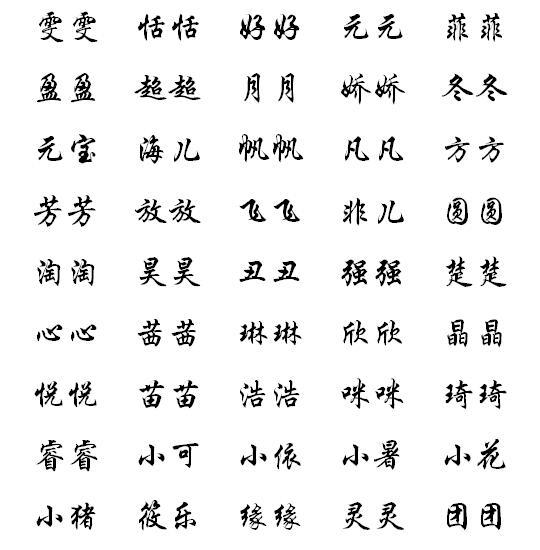 雯雯 恬恬 好好 元元 菲菲
盈盈 超超 月月 娇娇 冬冬
元宝 海儿 帆帆 凡凡 方方
芳芳 放放 飞飞 非儿 圆圆
淘淘 昊昊 丑丑 强强 楚楚
心心 茜茜 琳琳 欣欣 晶晶
悦悦 苗苗 浩浩 咪咪 琦琦
睿睿 小可 小依 小暑 小花
小猪 筱乐 缘缘 灵灵 团团